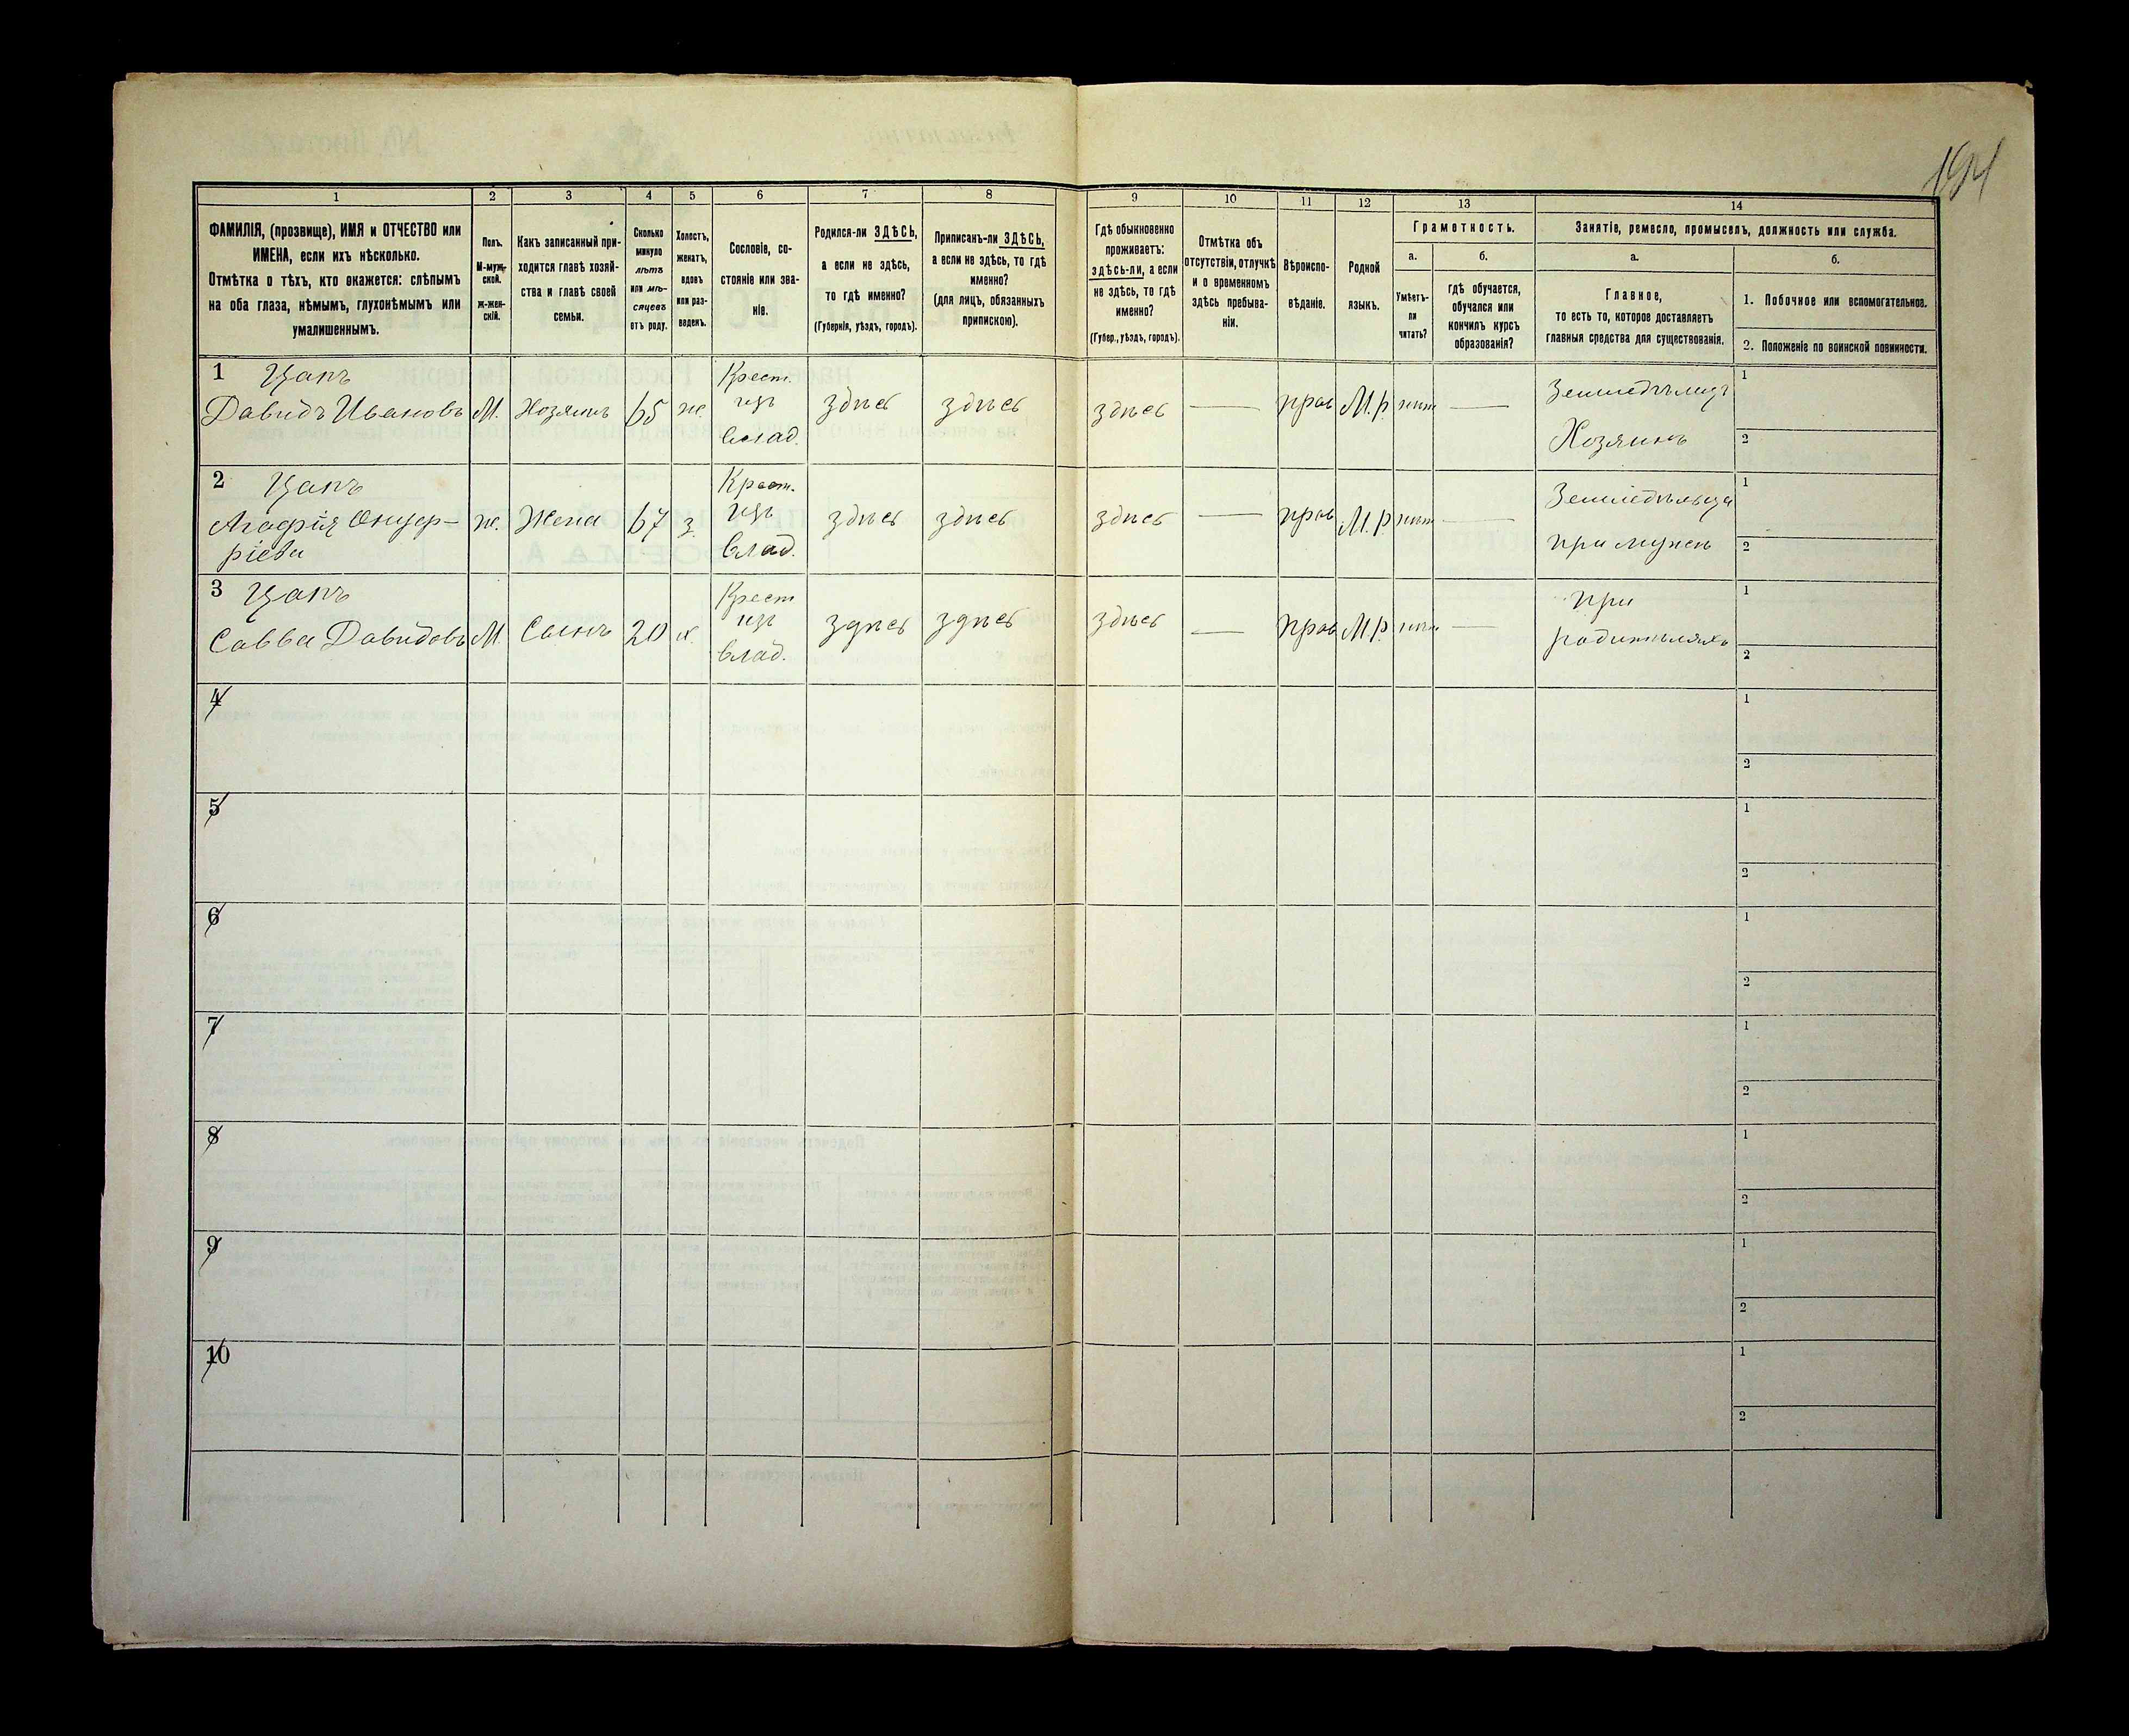 194
1
2
3
4
5
6
7
8
9
10
11
12
13
14
ФАМИЛІЯ, (прозвище), ИМЯ и ОТЧЕСТВО или
ИМЕНА, если ихъ нѣсколько.
Отмѣтка о тѣхъ, кто окажется: слѣпымъ
на оба глаза, нѣмымъ, глухонѣмымъ или
умалишеннымъ.
Полъ.
М-муж-
ской.
Ж-жен-
скій.
Какъ записанный при-
ходится главѣ хозяй-
ства и главѣ своей
семьи.
Сколько
минуло
лѣтъ
или мѣ-
сяцевъ
отъ роду.
Холостъ,
женатъ,
вдовъ
или раз-
веденъ.
Сословіе, со-
стояніе или зва-
ніе.
Родился-ли ЗДѢСЬ,
а если не здѣсь,
то гдѣ именно?
(Губернія, уѣздъ, городъ).
Приписанъ-ли ЗДѢСЬ,
а если не здѣсь, то гдѣ
именно?
(для лицъ, обязанныхъ
припискою).
Гдѣ обыкновенно
проживаетъ:
здѣсь-ли, а если
не здѣсь, то гдѣ
именно?
(Губер., уѣздъ, городъ).
Отмѣтка объ
отсутствіи, отлучкѣ
и о временномъ
здѣсь пребыва-
ніи.
Вѣроиспо-
вѣданіе.
Родной
языкъ.
Грамотность.
а.
Умѣетъ-
ли
читать?
б.
гдѣ обучается,
обучался или
кончилъ курсъ
образованія?
Занятіе, ремесло, промыселъ, должность или служба.
а.
Главное,
то есть то, которое доставляетъ
главныя средства для существованія.
б.
1. Побочное или вспомогательное.
2. Положеніе по воинской повинности.
1 Цапъ
Давидъ Ивановъ
М.
Хозяинъ
65
ж.
Крест.
изъ
влад.
здѣсь
здѣсь
здѣсь
—
прав
М.р.
нит
—
Земледѣлецъ
Хозяинъ
1
2
2 Цапъ
Агафія Онуф-
ріева
ж.
Жена
67
з.
Крест.
изъ
влад.
здѣсь
здѣсь
здѣсь
—
прав
М.р.
нит
—
при мужѣ
1
2
3 Цапъ
Савва Давидовъ
М.
Сынъ
20
х.
Крест
изъ
влад.
здѣсь
здѣсь
здѣсь
—
прав
М.р.
—
при
родителяхъ
1
2
4
1
2
5
1
2
6
1
2
7
1
2
8
1
2
9
1
2
10
1
2